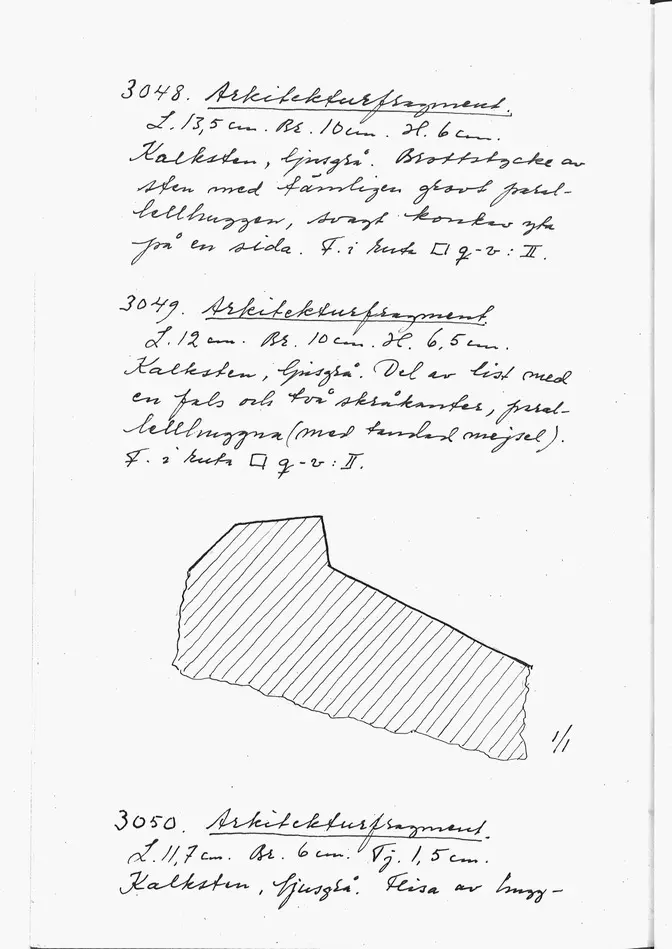 3048. Arkitekturfragment.
L. 13,5 cm. Br. 10 cm. H. 6 cm.
Kalksten, ljusgrå. Brottstycke av
sten med tämligen grovt paral-
lellhuggen, svagt konkav yta
på en sida. F. i ruta □ q-v: II.
3049. Arkitekturfragment.
L. 12 cm. Br. 10 cm. H. 6,5 cm.
Kalksten, ljusgrå. Del av list med
en fals och två skråkanter, paral-
lellhuggna (med tandad mejsel).
F. i ruta □ q-v: II.
1/1
3050. Arkitekturfragment.
L. 11,7 cm. Br. 6 cm. Tj. 1,5 cm.
Kalksten, ljusgrå. Flisa av hugg-